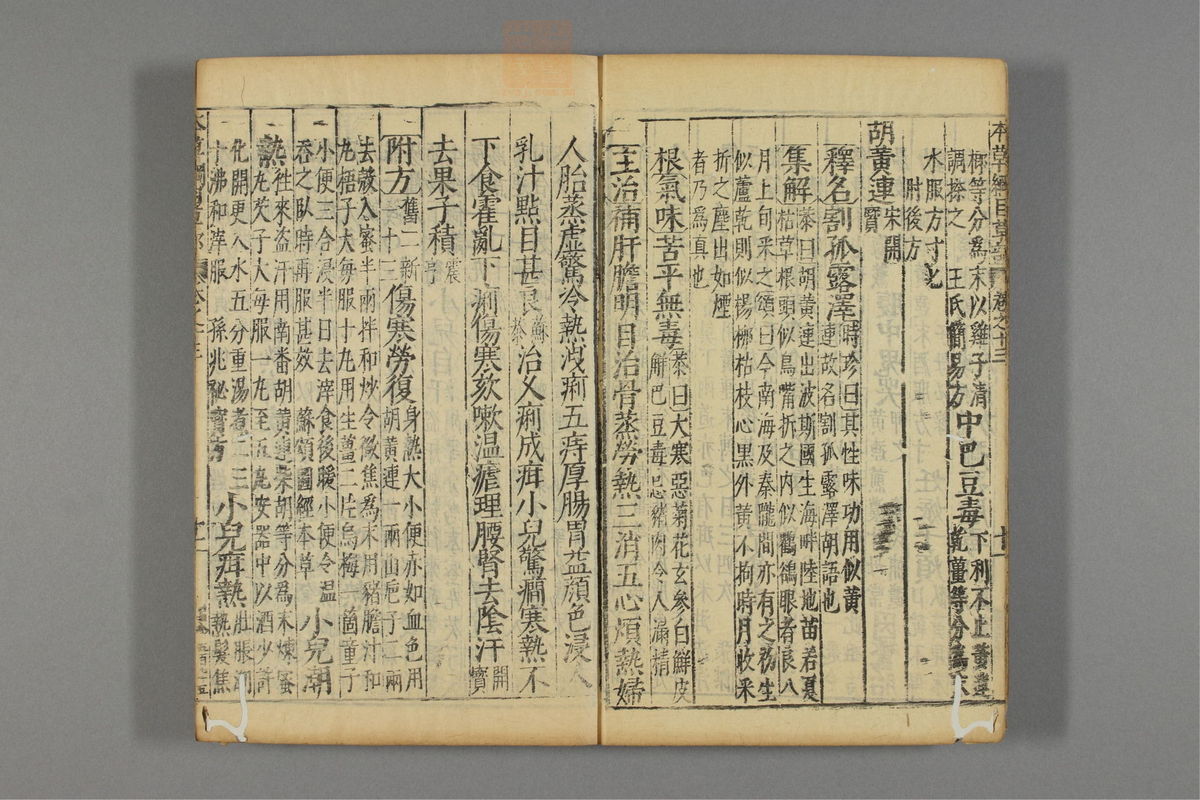 本草綱目草部 卷之十三
榔等分爲末以雞子清
調搽之 王氏簡易方 中巴豆毒 下利不止黃連
乾薑等分爲末
水服方寸匕
肘後方
胡黃連 宋開
寶
釋名 割孤露澤 時珍曰其性味功用似黃
連故名割孤露澤胡語也
集解 恭曰胡黃連出波斯國生海畔陸地苗若夏
枯草根頭似鳥嘴折之内似鸜鵒眼者良八
月上旬采之頌曰今南海及秦隴間亦有之初生
似蘆乾則似楊柳枯枝心黑外黃不拘時月收采
折之塵出如煙
者乃爲真也
根氣味苦平無毒 恭曰大寒惡菊花玄參白鮮皮
解巴豆毒忌豬肉令人漏精
主治補肝膽明目治骨蒸勞熱三消五心煩熱婦
人胎蒸虛驚冷熱洩痢五痔厚腸胃益顏色浸人
乳汁點目甚良 蘇
恭 治久痢成疳小兒驚癇寒熱不
下食霍亂下痢傷寒欬嗽温瘧理腰腎去陰汗 開
寶
去果子積 震
亨
附方 舊二新
十三 傷寒勞復 身熱大小便赤如血色用
胡黃連一兩山巵子二兩
去殼入蜜半兩拌和炒令微焦爲末用豬膽汁和
丸梧子大每服十丸用生薑二片烏梅一箇童子
小便三合浸半日去滓食後暖小便令温
吞之臥時再服甚效 蘇頌圖經本草 小兒潮
熱 往來盜汗用南番胡黃連柴胡等分爲末煉蜜
丸芡子大每服一丸至五丸安器中以酒少許
化開更入水五分重湯煮二三
十沸和滓服 孫兆秘寶方 小兒疳熱 肚脹潮
熱髮焦